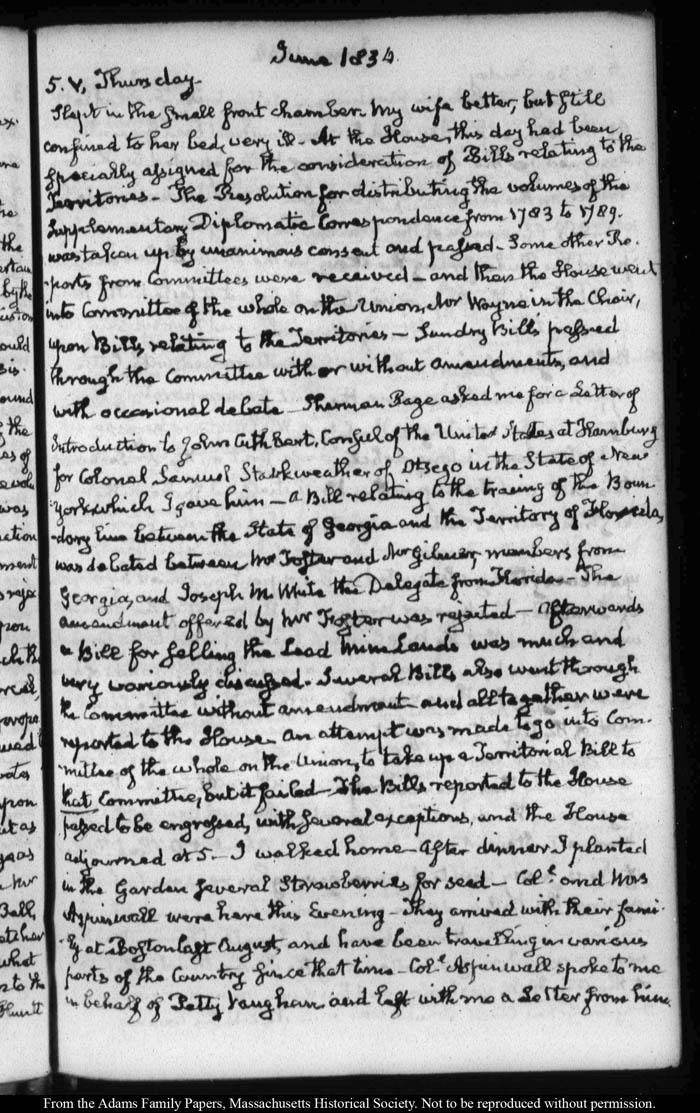 June 1834.
5. V, Thursday.
Slept in the small front chamber. My wife better, but still
confined to her bed, very ill - At the House, this day had been
specially assigned for the consideration of Bills relating to the
Territories - The Resolution for distributing the volumes of the
Supplementary Diplomatic Correspondence from 1783 to 1789.
was taken up by unanimous consent and passed - Some other Re-
-ports from Committees were received - and then the House went
into Committee of the whole on the Union, Mr Wayne in the Chair,
upon Bills, relating to the Territories - Sundry Bills passed
through the Committee with or without amendments, and
with occasional debate - Sherman Page asked me for a Letter of
introduction to John Cuthbert, Consul of the United States at Hamburg
for Colonel Samuel Starkweather of Otsego in the State of New
York which I gave him - a Bill relating to the tracing of the Boun-
-dary line between the State of Georgia and the Territory of Florida,
was debated between Mr Foster and Mr Gilmer, members from
Georgia, and Joseph M. White the Delegate from Florida - The
amendment offered by Mr Foster was rejected - Afterwards
a Bill for selling the Lead Mine Lands was much and
very variously discussed. Several Bills also went through
the Committee without amendment and all together were
reported to the House. an attempt was made to go into Com-
-mittee of the whole on the Union, to take up a Territorial Bill to
that Committee, but it failed - The Bills reported to the House
passed to be engrossed, with several exceptions, and the House
adjourned at 5 - I walked home - After dinner I planted
in the Garden several Strawberries for seed - Colˡ. and Mrs
Aspinwall were here this Evening - They arrived with their fami-
-ly at Boston last August, and have been travelling in various
parts of the Country since that time - Colˡ Aspinwall spoke to me
in behalf of Petty Vaughan and left with me a Letter from him.
From the Adams Family Papers, Massachusetts Historical Society. Not to be reproduced without permission.